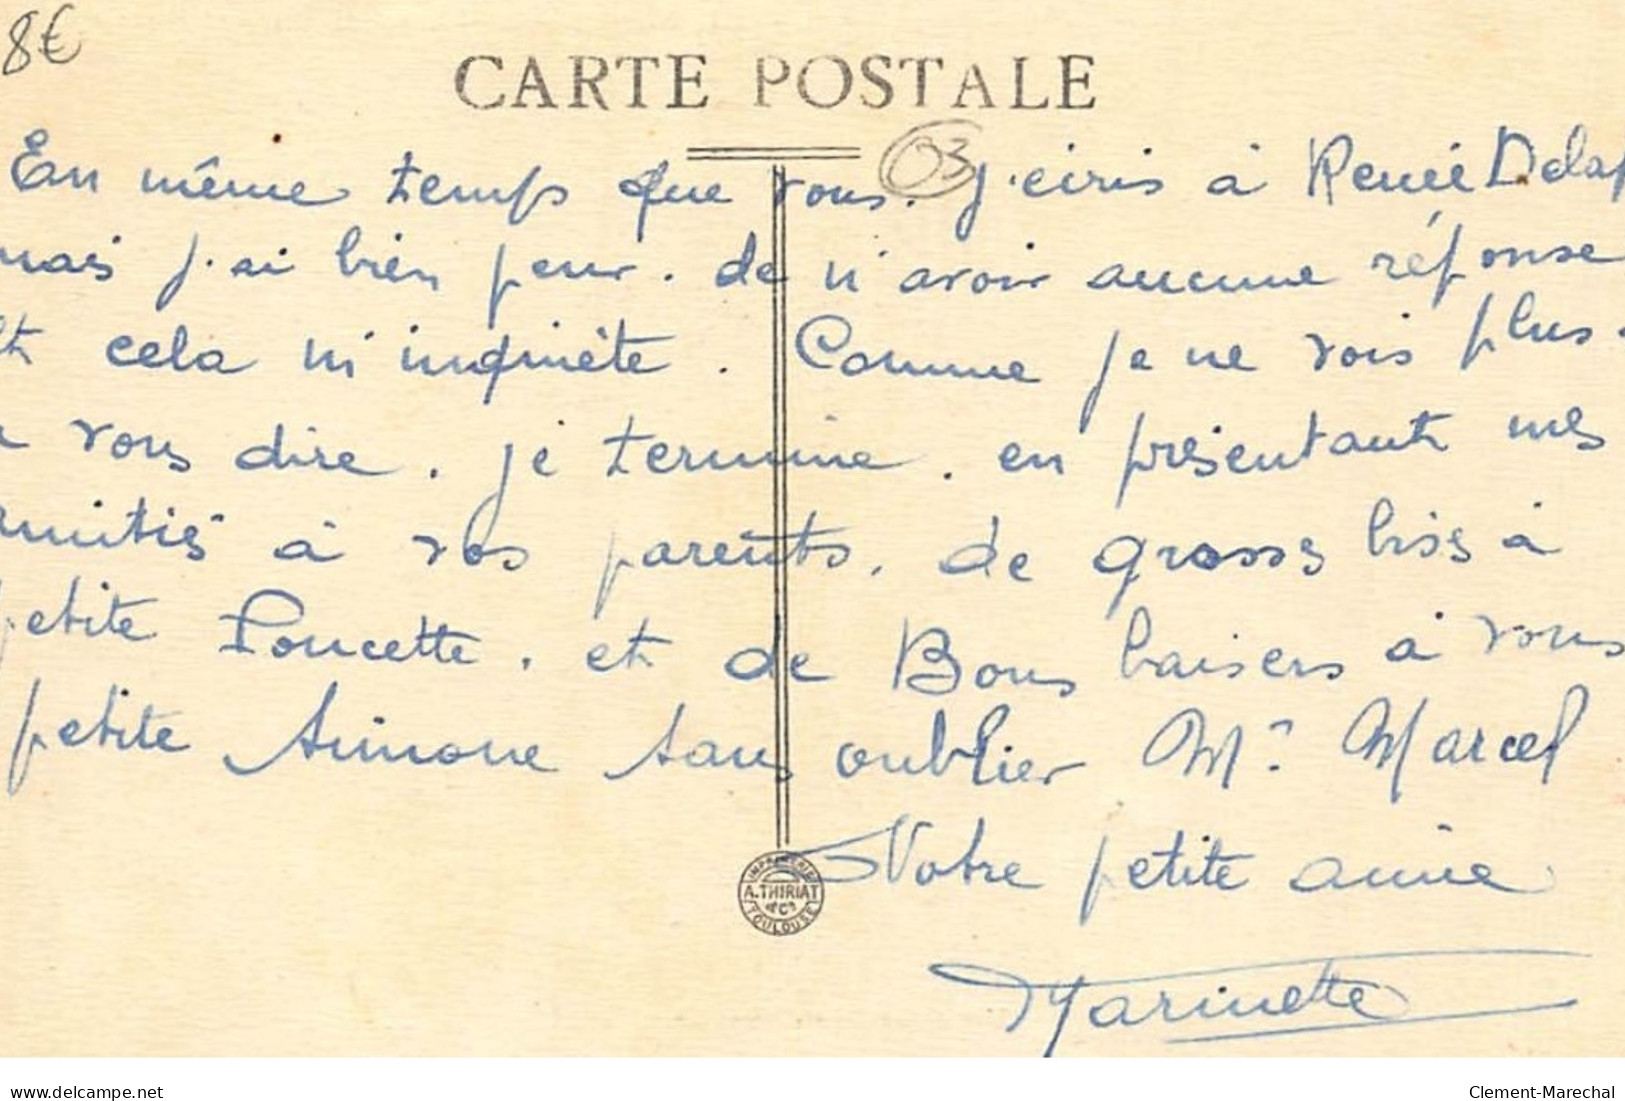 8€
CARTE POSTALE
03
En même temps que vous. j'écris à Renée Delap
mais j'ai bien peur. de n'avoir aucune réponse
et cela m'inquiète. Comme je ne vois plus.
à vous dire. je termine. en présentant mes
amitiés à vos parents. de grosses bises à
petite Poucette. et de Bons baisers à vous
petite Simone sans oublier Mr Marcel
Votre petite amie
Marinette
IMPRIMERIE
A. THIRIAT
& Cie
TOULOUSE
delcampe.net
Clement-Marechal